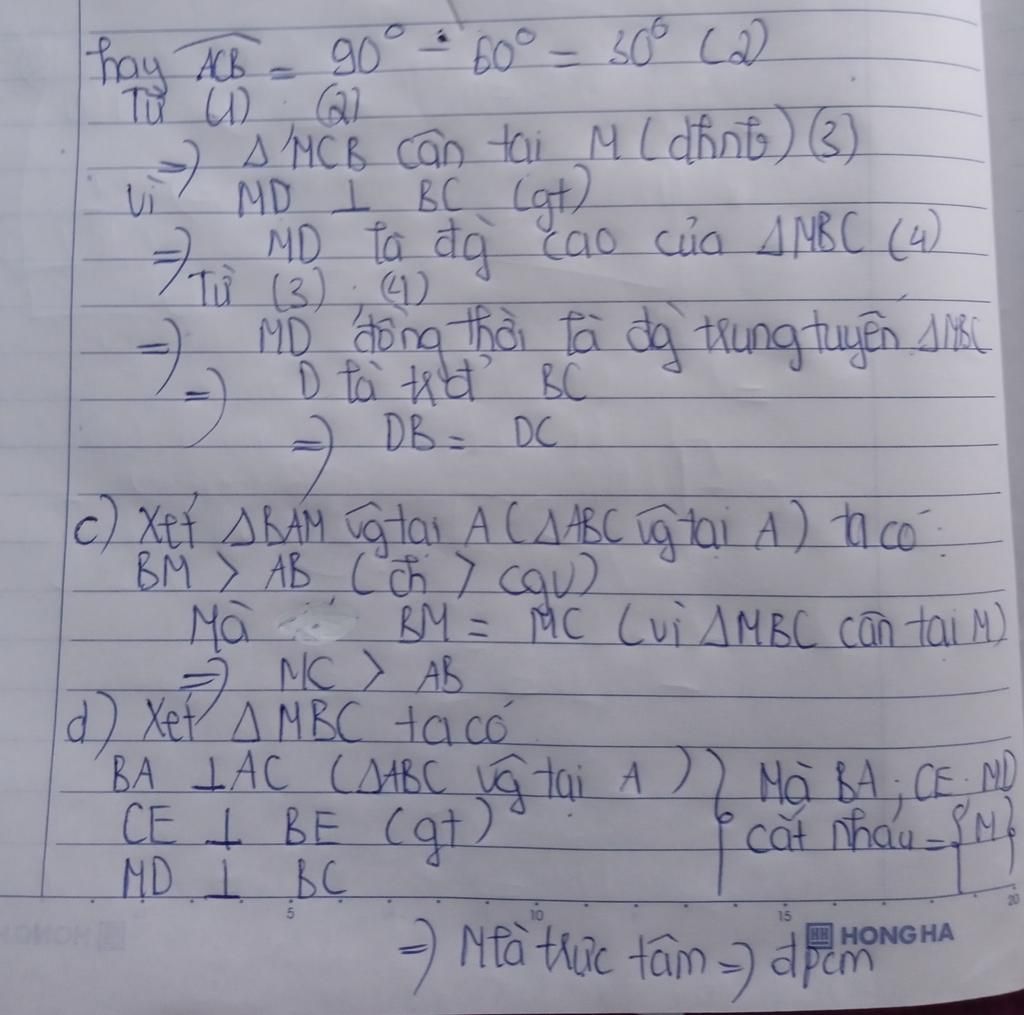 hay ACB = 90° - 60° = 30° (2)
Từ (1), (2)
=) Δ MCB cân tại M (dhnb) (3)
Vì MD ⊥ BC (gt)
=) MD là đg cao của ΔMBC (4)
Từ (3), (4)
=) MD đồng thời là đg trung tuyến ΔMBC
=) D là trđ BC
=) DB = DC
c) Xét ΔBAM vg tại A (ΔABC vg tại A) ta có
BM > AB (ch > cgv)
Mà BM = MC (vì ΔMBC cân tại M)
=) MC > AB
d) Xét ΔMBC ta có
BA ⊥ AC (ΔABC vg tại A) } Mà BA; CE; MD
CE ⊥ BE (gt) cắt nhau = {M}
MD ⊥ BC
5 10 15 20
HONG HA
=) M là trực tâm =) dpcm